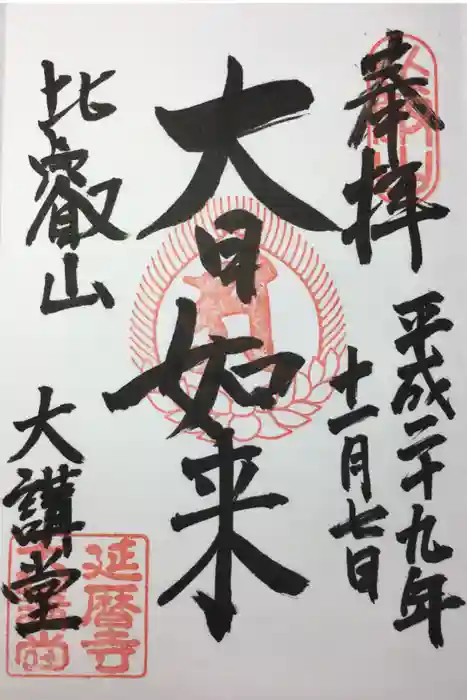 奉拝
平成二十九年
十一月七日
大日如来
比叡山
大講堂
延暦寺